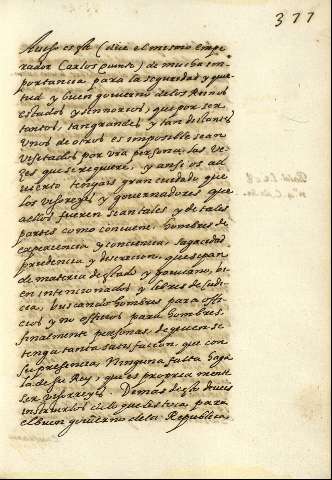 377
Auiso es este (dize el mismo empe
rador Carlos Quinto) de mucha im
portancia para la seguridad y quie
tud y buen gouierno de los Reinos
estados y señorios, que por ser
tantos, tan grandes y tan distantes
unos de otros es imposible sean
visitados por vra persona las ve
zes que se requiere, y ansi os ad
uierto tengais gran cuidado que
los vireyes y gouernadores que
a ellos fueren sean tales y de tales
partes como conuiene, hombres de
experiencia y conciencia sagacidad
prudencia y discrecion, que sepan
de materia de estado y gouierno, bi
en intencionados y libres de codi
cia, buscando hombres para ofi
cios y no officios para hombres.
finalmente personas de quien se
tenga tanta satisfaccion, que con
su presencia Ninguna falta haga
la de su Rey, que es propria mente
ser visorreyes. Demas de esto deueis
instruirlos en lo que les toca para
el buen gouierno de la Republica